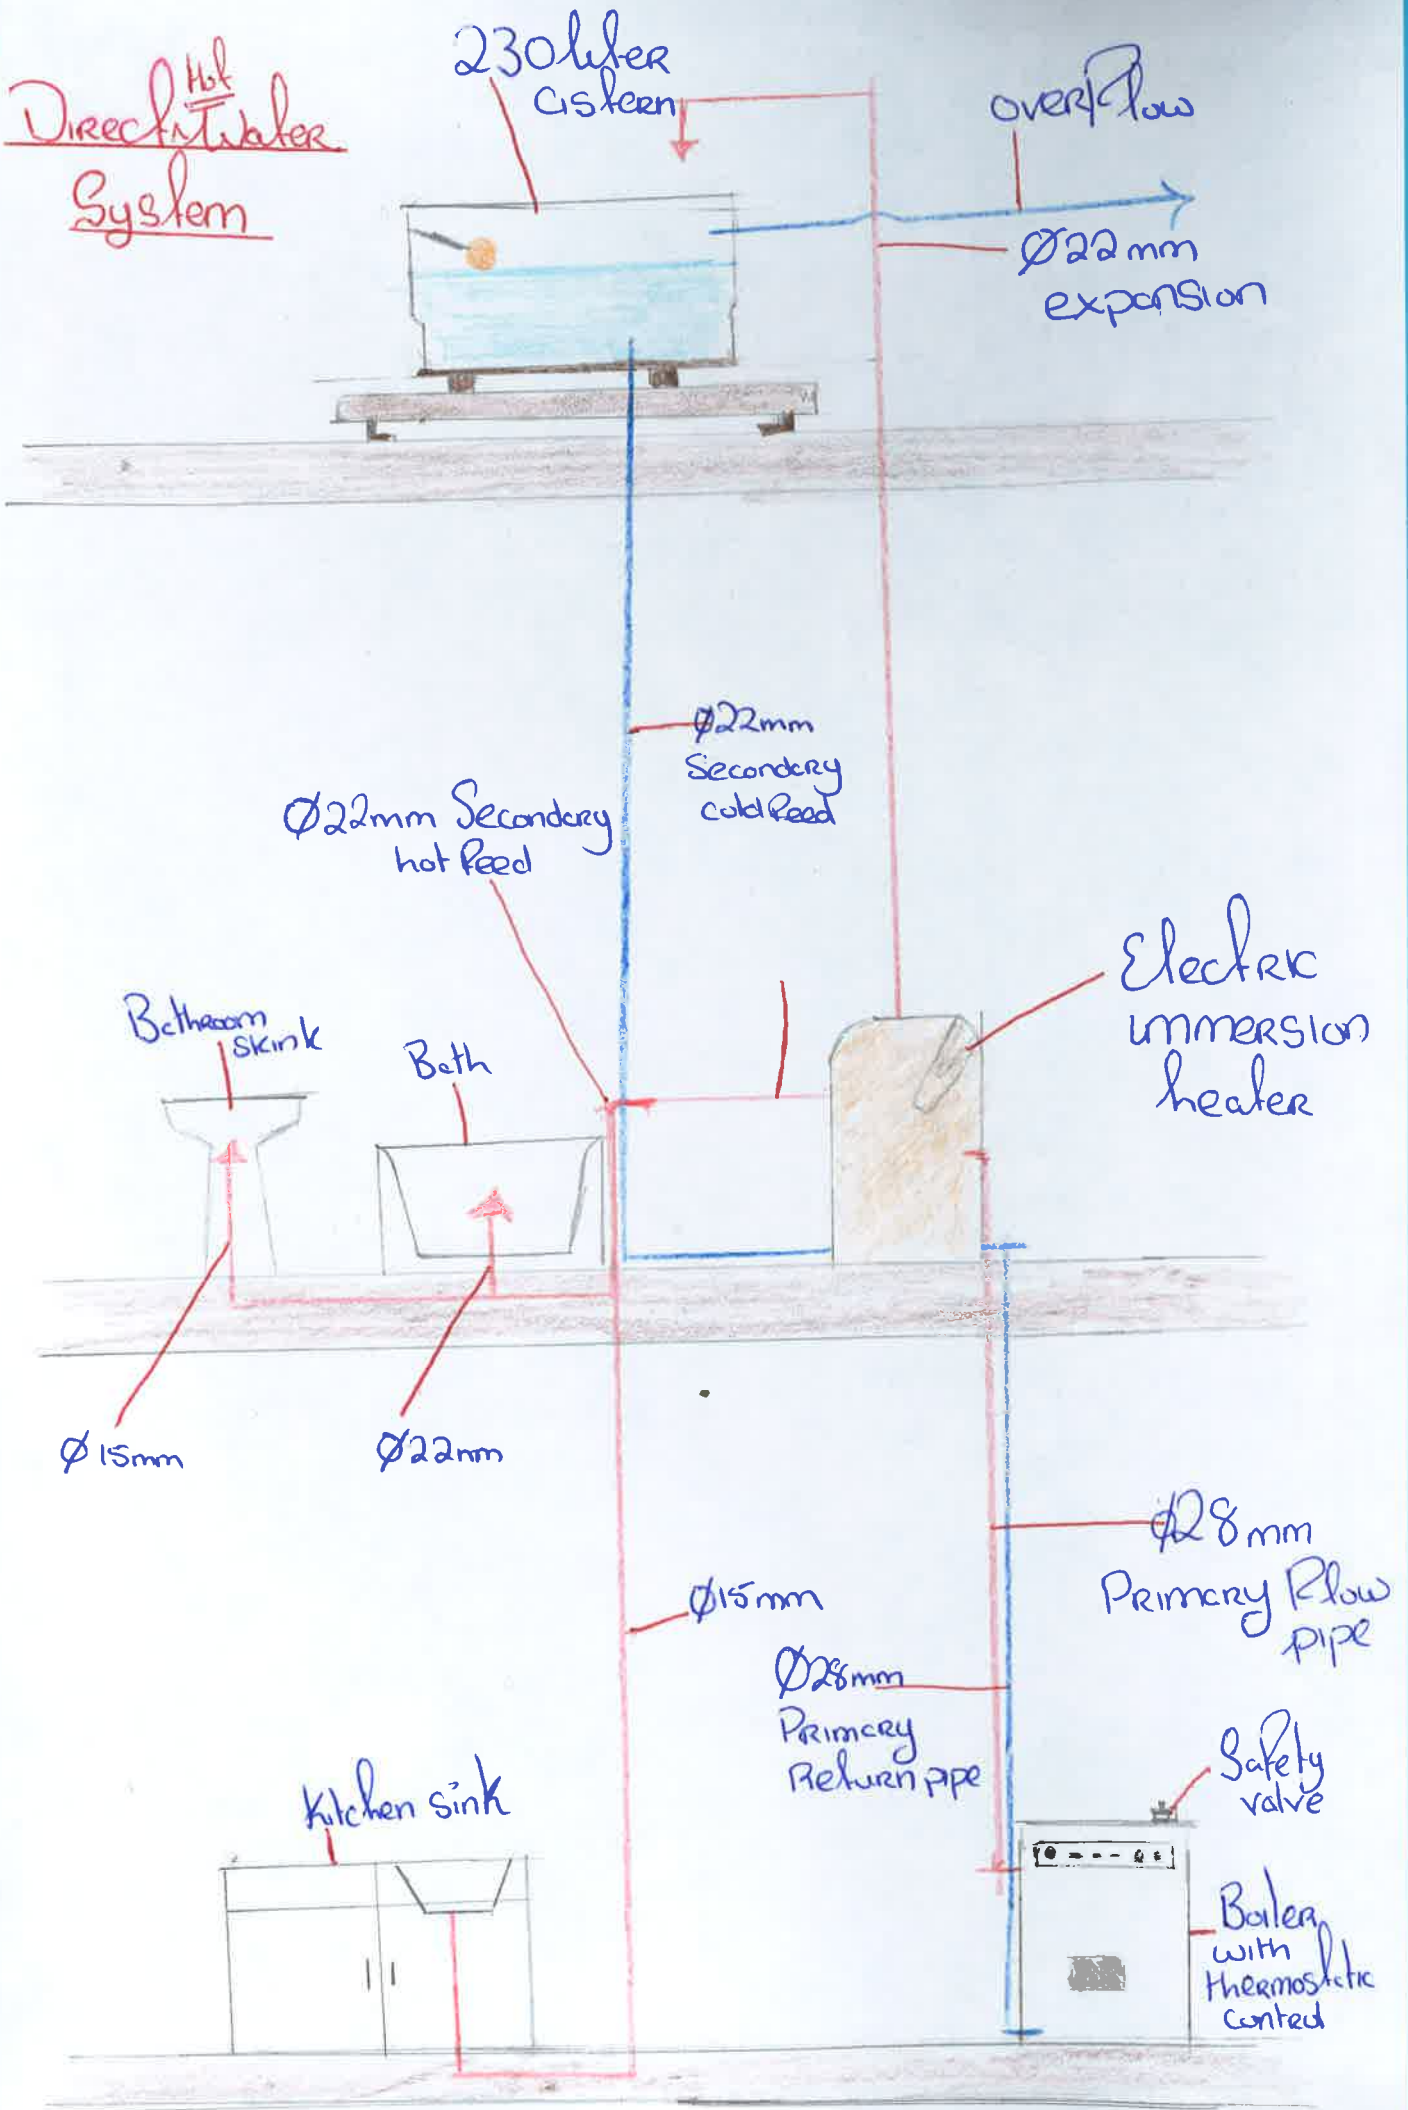 Direct Hot Water
System
230 liter
cistern
overflow
Ø22mm
expansion
Ø22mm
Secondary
cold feed
Ø22mm Secondary
hot feed
Electric
immersion
heater
Bathroom
skink
Bath
Ø15mm
Ø22mm
Ø28mm
Primary flow
pipe
Ø15mm
Ø28mm
Primary
Return pipe
Safety
valve
Kitchen sink
Boiler
with
thermostatic
control